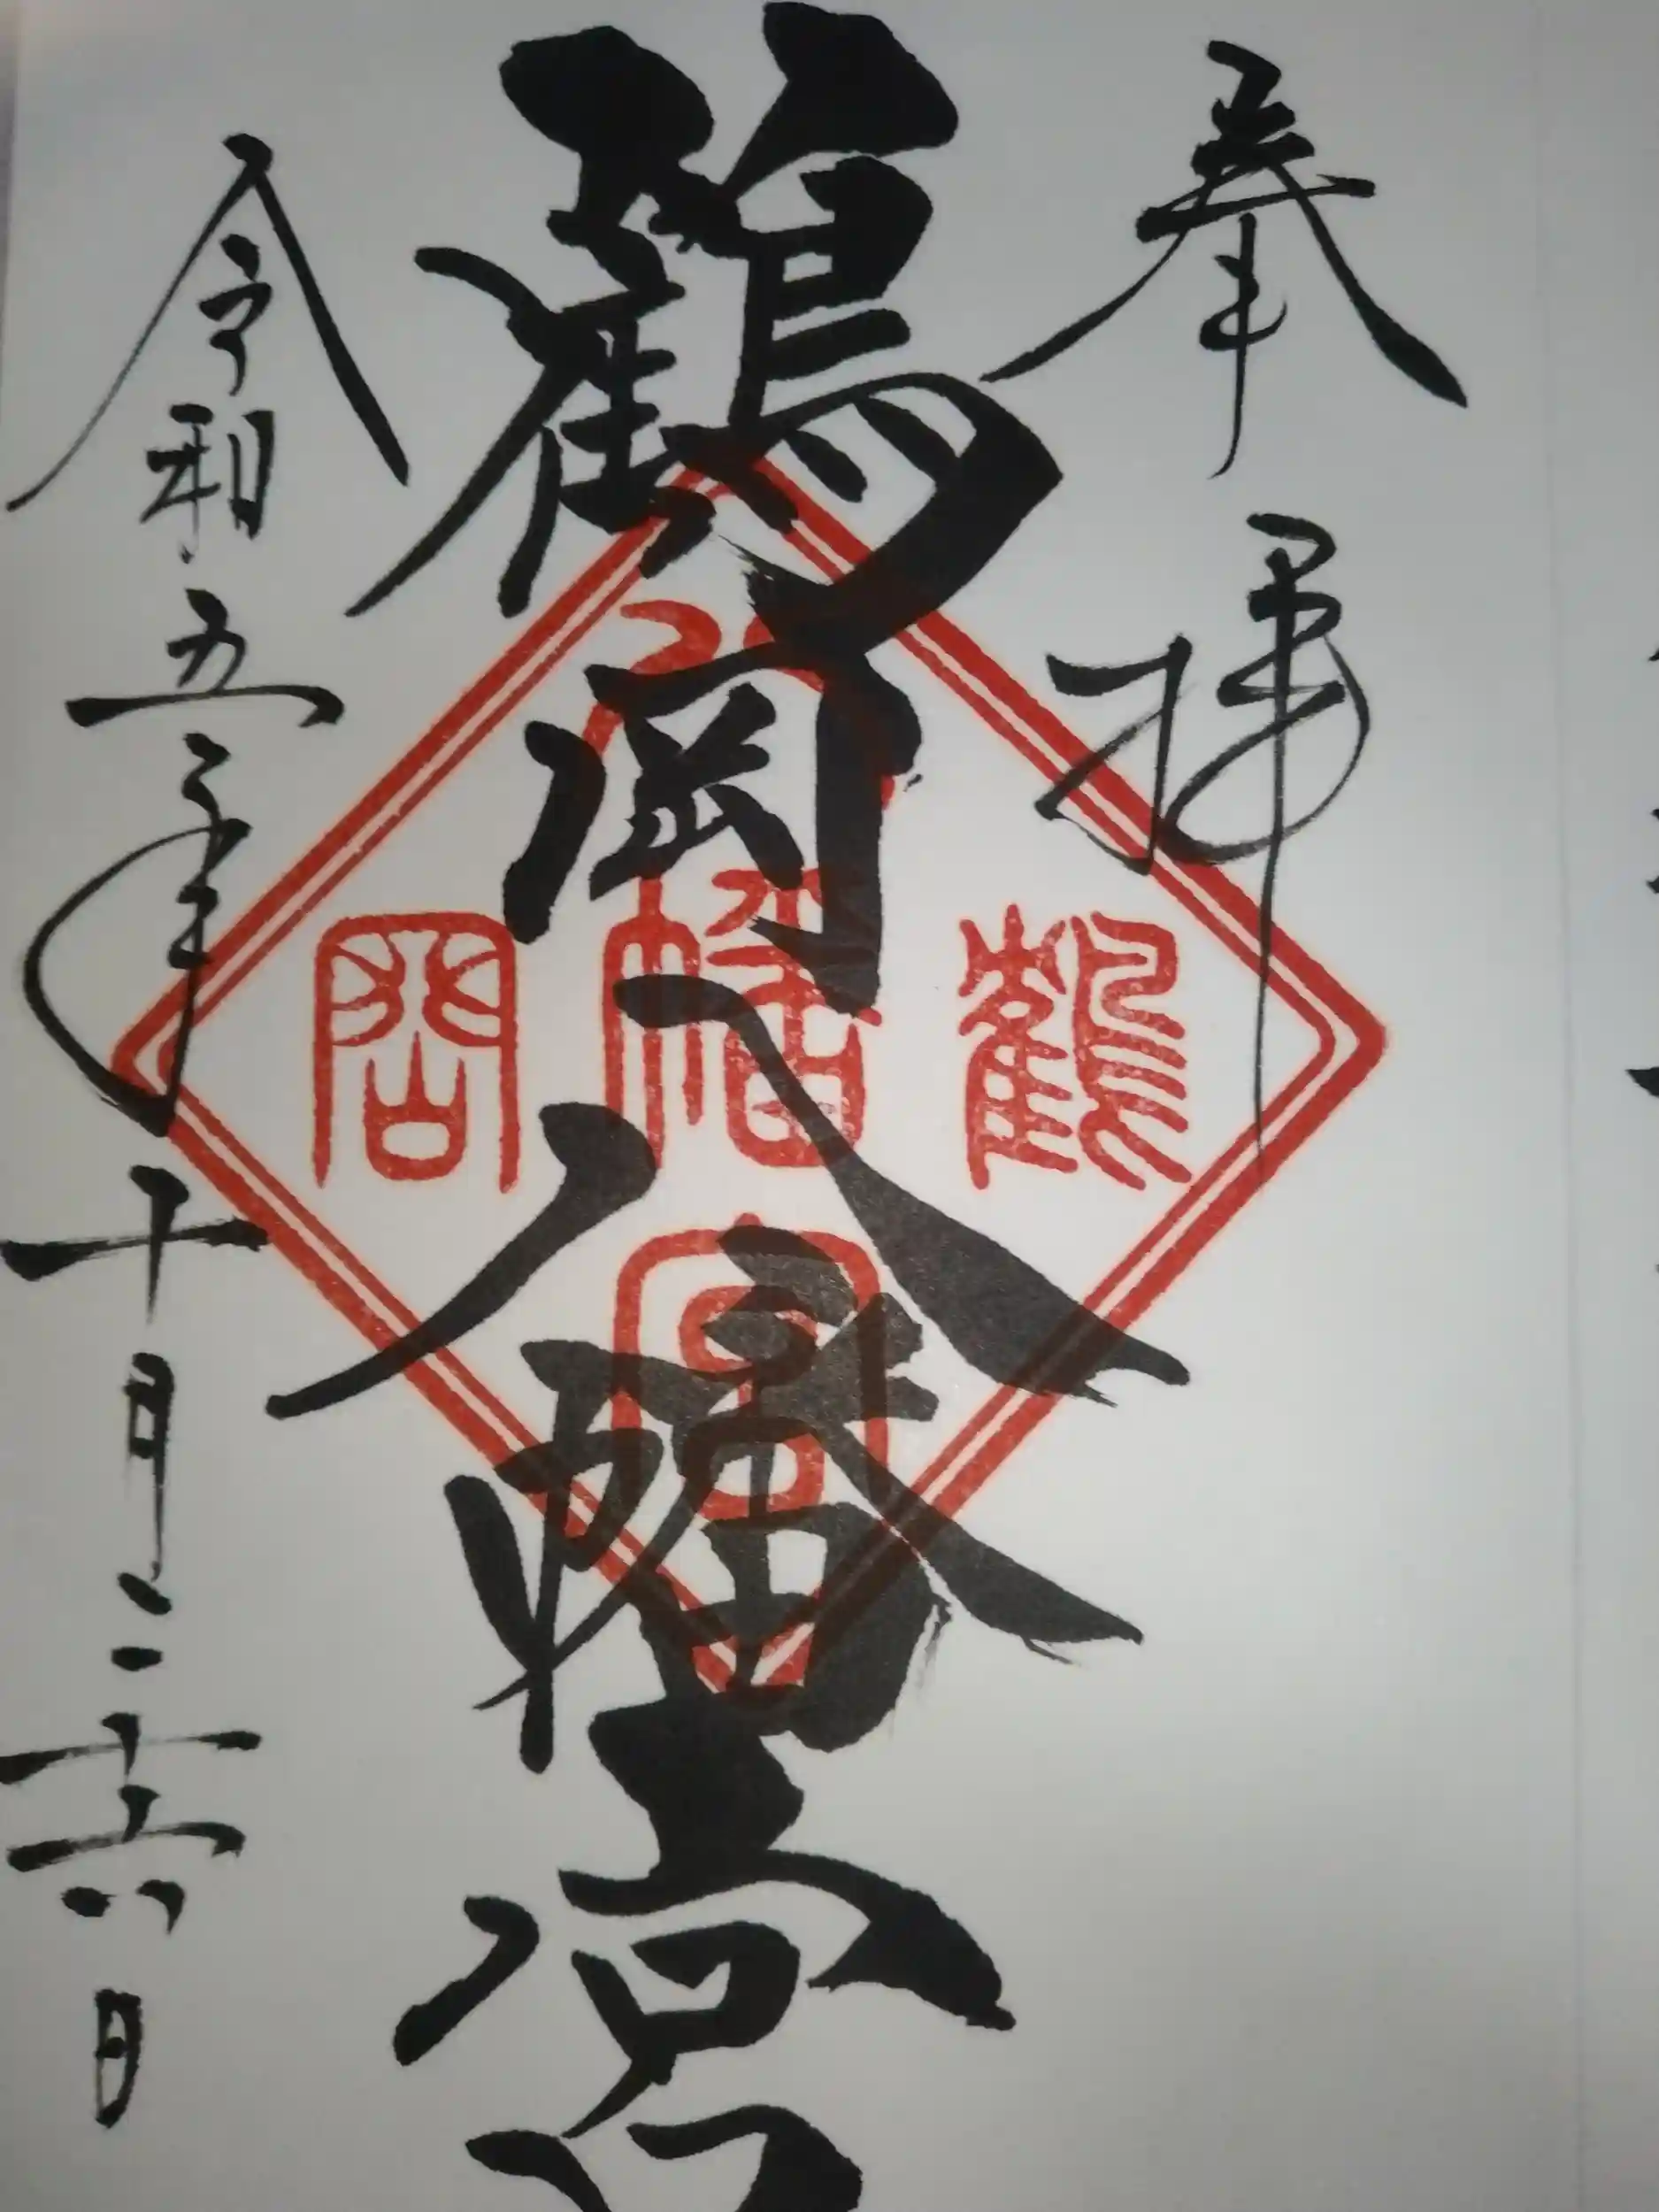 奉拝
鶴岡八幡宮
令和五年十月二十六日
八
鶴
幡
岡
宮